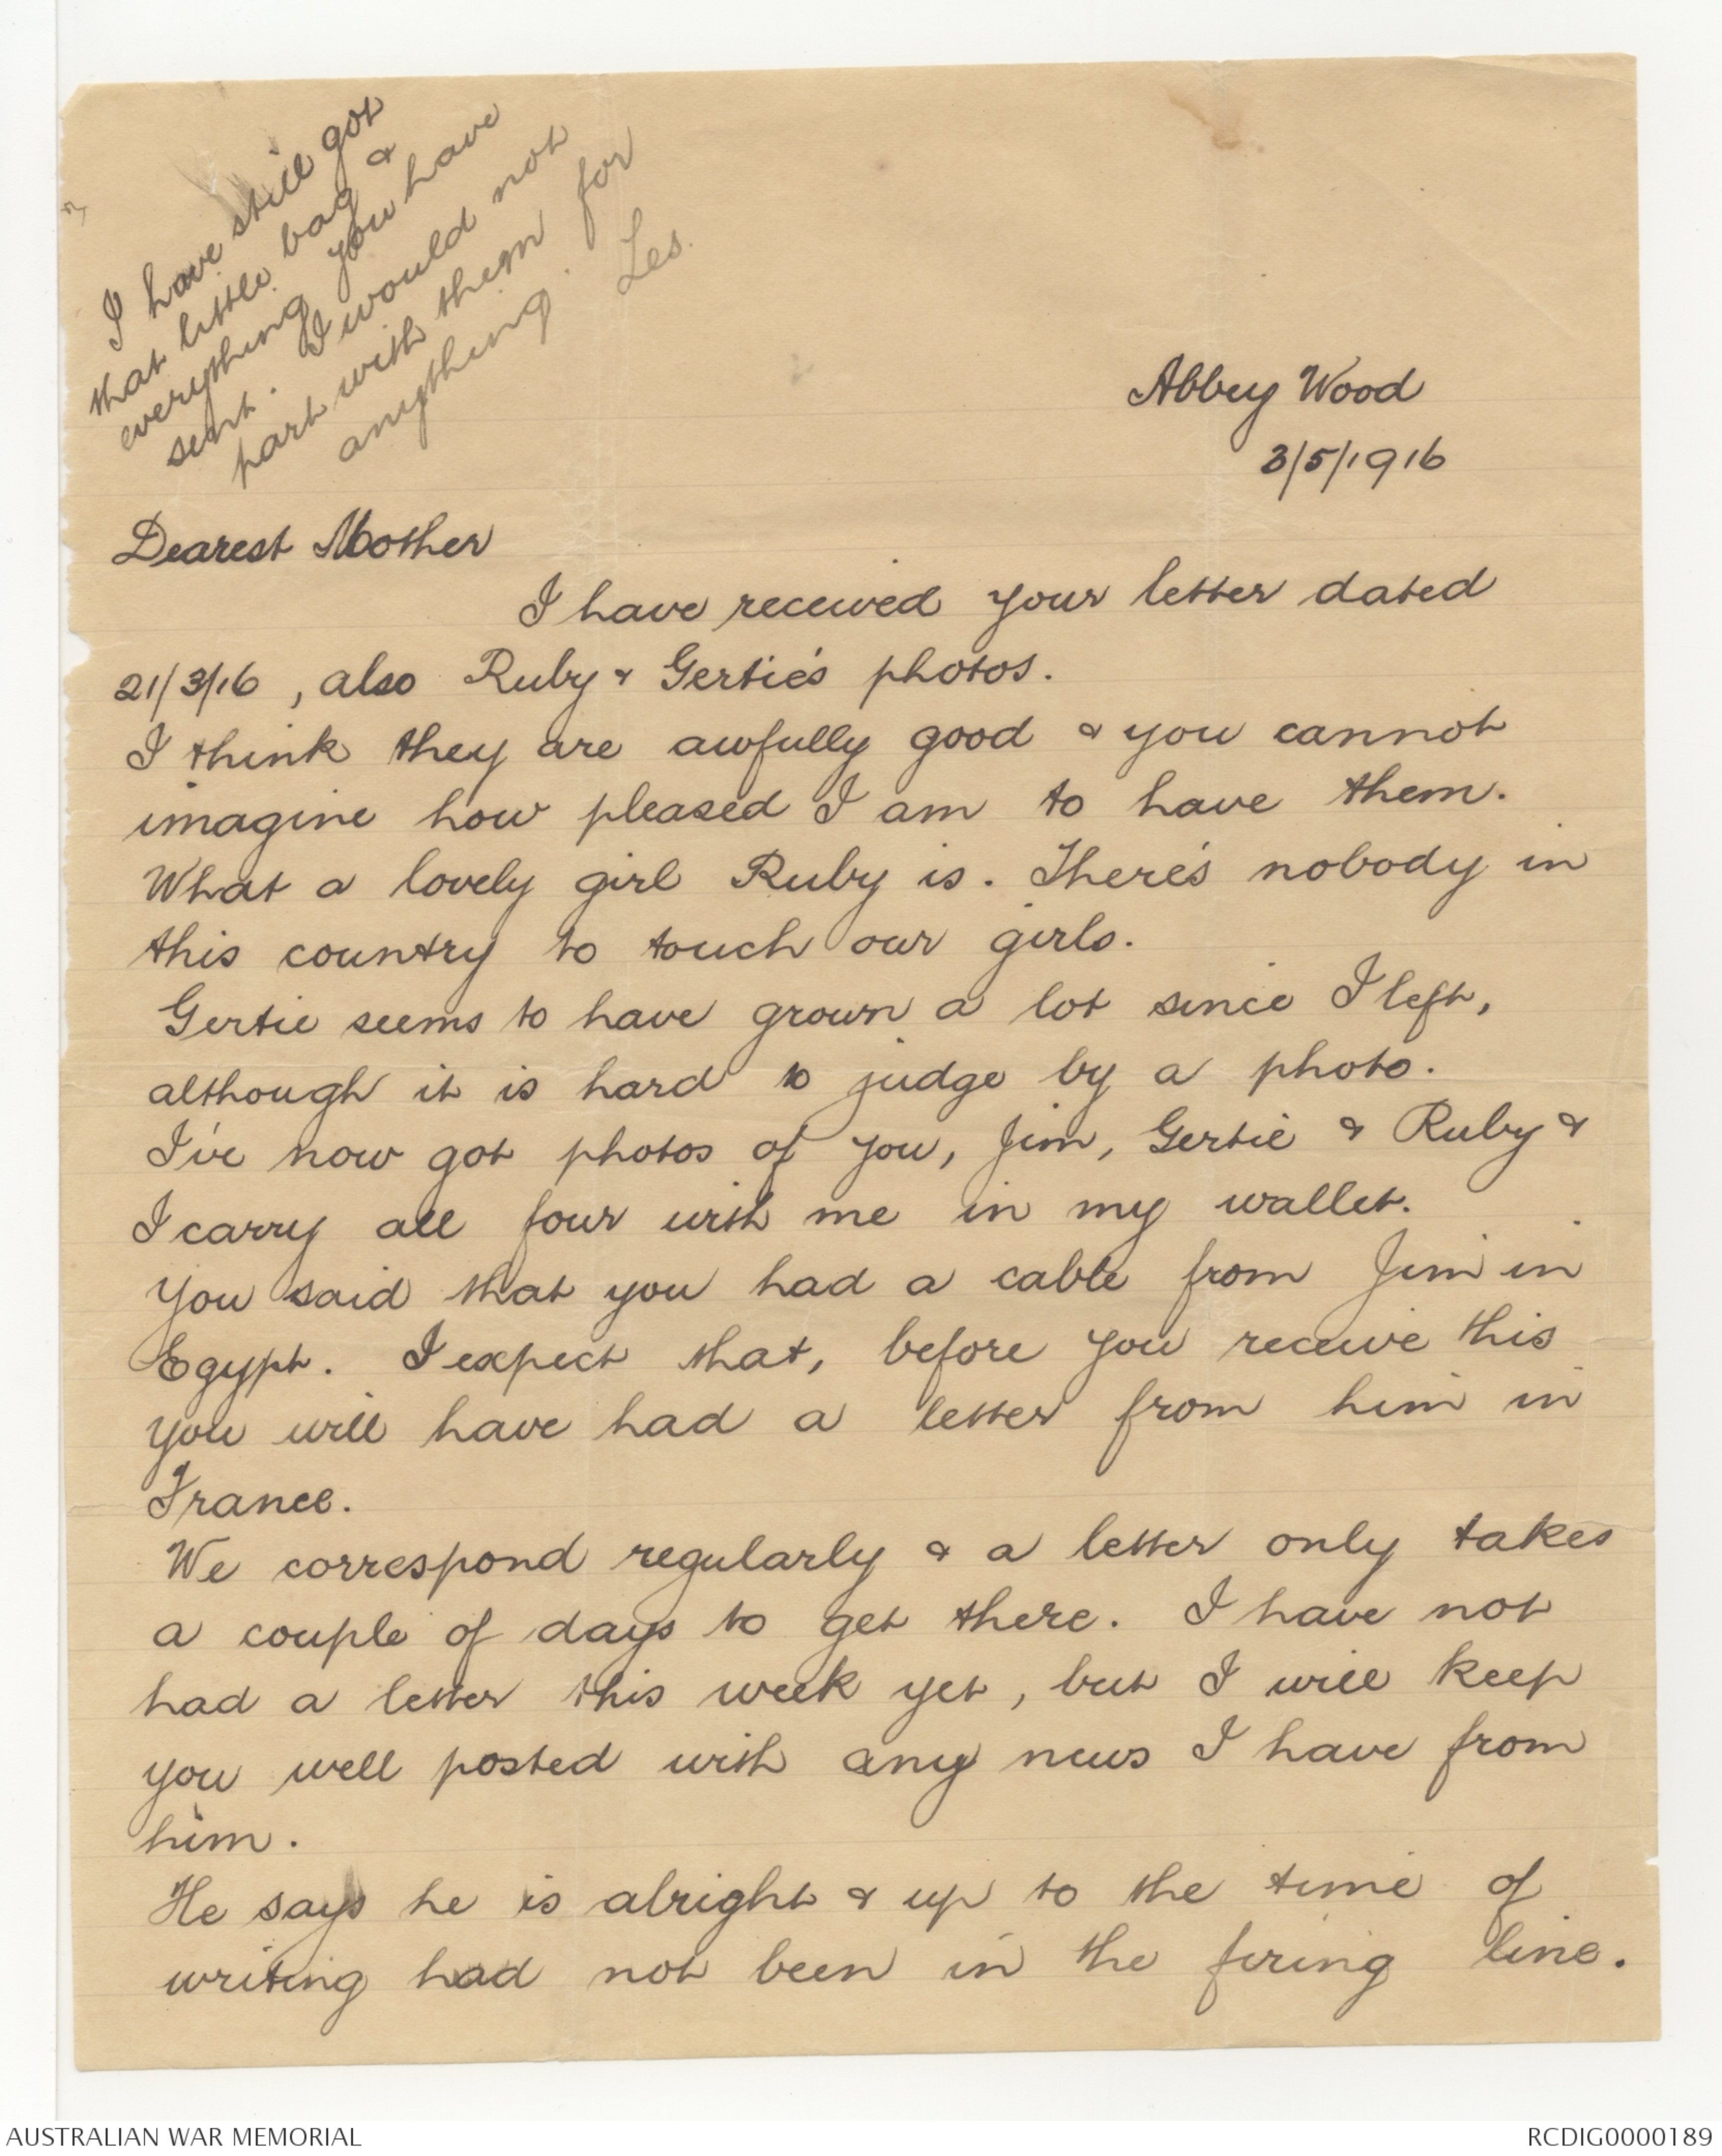 I have still got
that little bag &
everything you have
sent. I would not
part with them for
anything. Les.
Abbey Wood
3/5/1916
Dearest Mother
I have received your letter dated
21/3/16, also Ruby & Gertie's photos.
I think they are awfully good & you cannot
imagine how pleased I am to have them.
What a lovely girl Ruby is. There's nobody in
this country to touch our girls.
Gertie seems to have grown a lot since I left,
although it is hard to judge by a photo.
I've now got photos of you, Jim, Gertie & Ruby &
I carry all four with me in my wallet.
You said that you had a cable from Jim in
Egypt. I expect that, before you receive this
you will have had a letter from him in
France.
We correspond regularly & a letter only takes
a couple of days to get there. I have not
had a letter this week yet, but I will keep
you well posted with any news I have from
him.
He says he is alright & up to the time of
writing had not been in the firing line.
AUSTRALIAN WAR MEMORIAL
RCDIG0000189